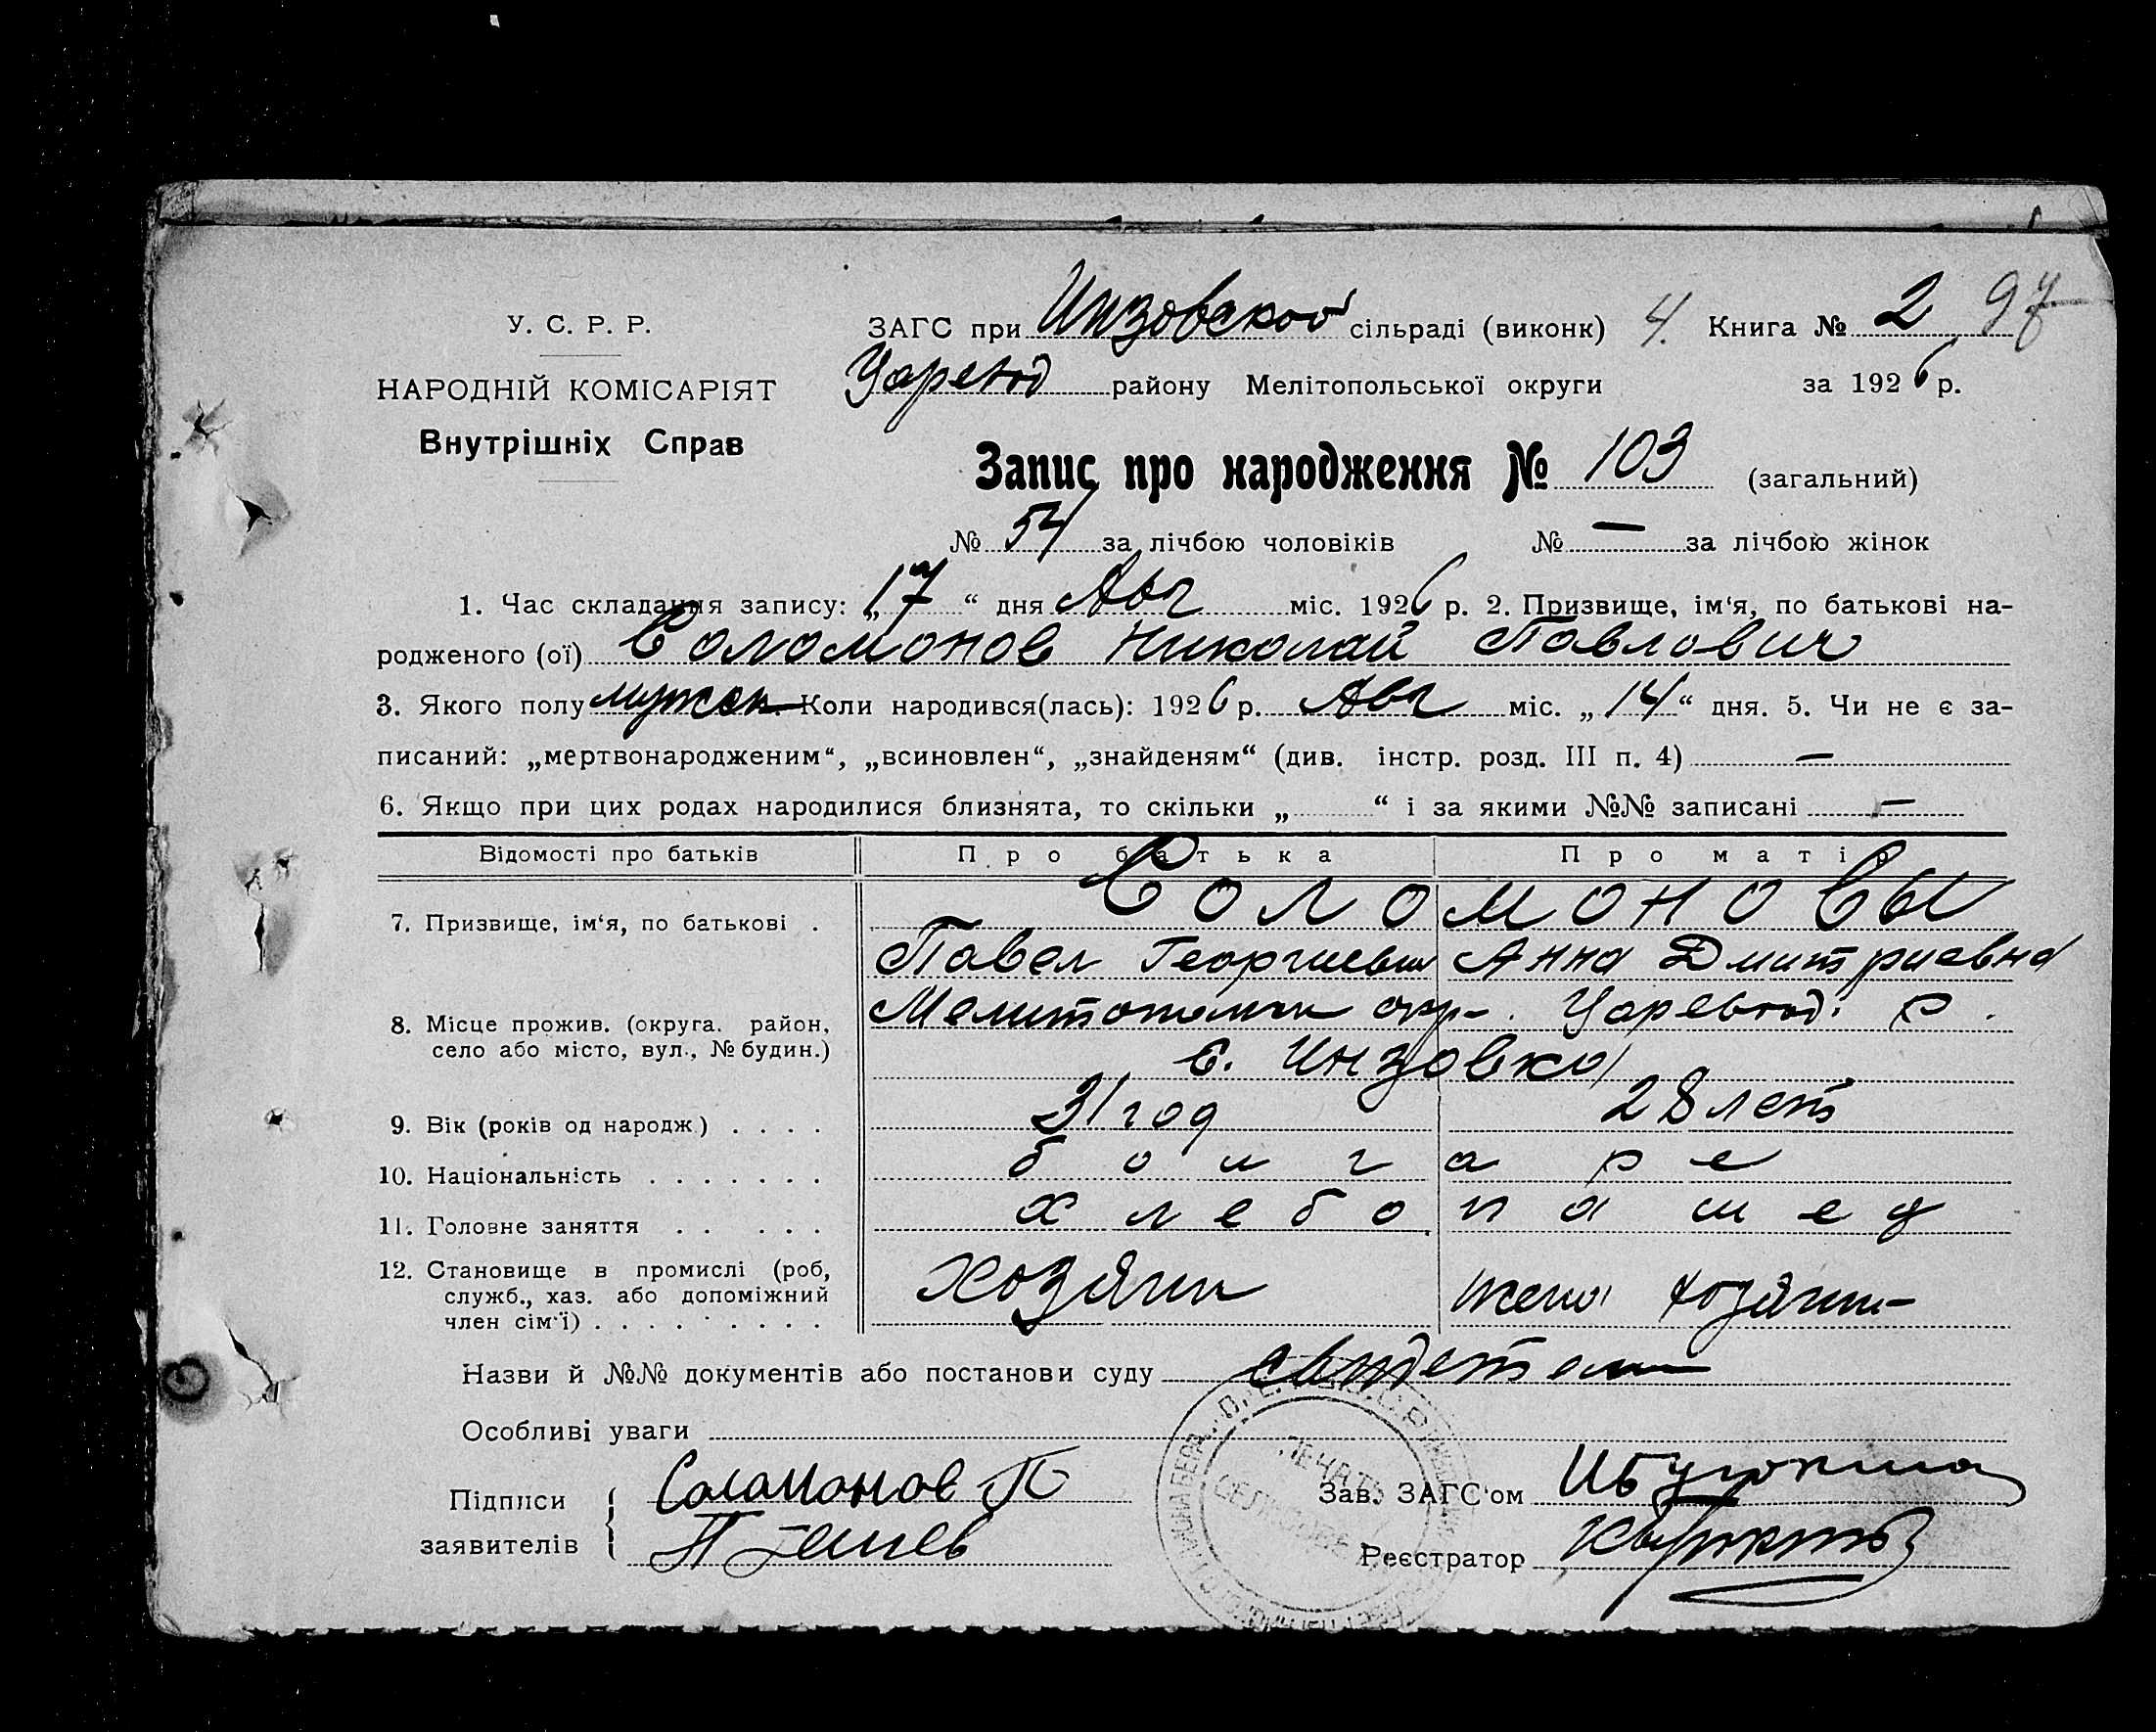 У. С. Р. Р.
НАРОДНІЙ КОМІСАРІЯТ
Внутрішніх Справ
ЗАГС при Инзовской сільраді (виконк) 4. Книга № 2 97
Царевод району Мелітопольської округи за 1926 р.
Запис про народження № 103 (загальний)
№ 54 за лічбою чоловіків № — за лічбою жінок
1. Час складання запису: „17“ дня Авг міс. 1926 р. 2. Призвище, ім‘я, по батькові на-
родженого (ої) Соломонов Николай Павлович
3. Якого полу мужск. Коли народився(лась): 1926 р. Авг міс. „14“ дня. 5. Чи не є за-
писаний: „мертвонародженим“, „всиновлен“, „знайденям“ (див. інстр. розд. III п. 4) —
6. Якщо при цих родах народилися близнята, то скільки „ “ і за якими №№ записані —
Відомості про батьків Про батька Про матір
7. Призвище, ім‘я, по батькові . Соломоновы
Павел Георгиевич Анна Дмитриевна
8. Місце прожив. (округа, район, село або місто, вул., № будин.) Мелитопольск окр. Царевод. р.
с. Инзовка
9. Вік (років од народж.) . . . . 31 год 28 лет
10. Національність . . . . . . . болгаре
11. Головне заняття . . . . . хлебопашец
12. Становище в промислі (роб, служб., хаз. або допоміжний член сім‘ї) . . . . . . . . . хозяин жена хозяин-
Назви й №№ документів або постанови суду свидетели
Особливі уваги
Підписи заявителів Соломонов П
Зав. ЗАГС‘ом
Реєстратор
ПЕЧАТЬ